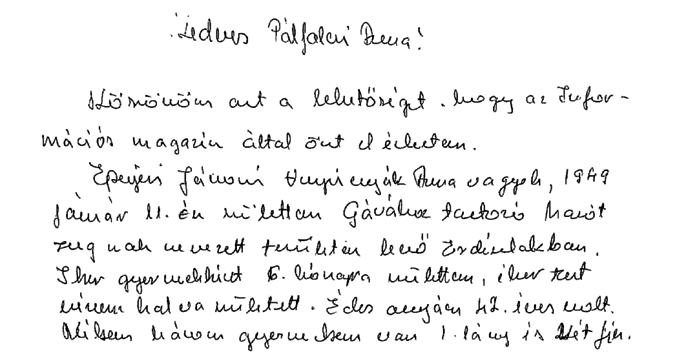 Kedves Pálfalvi Anna!
Köszönöm azt a lehetőséget. hogy az Infor-
mációs magazin által önt el értem.
Eperjesi Jánosné Anna vagyok, 1949
január 11.-én születtem Gávához tartozó Marót
zug nak nevezett területén levő Erdészlakban.
Iker gyermekként 6. hónapra születtem, iker test
vérem hal va született. Édes anyám 42. éves volt.
Nekem három gyermekem van 1. lány is két fiú.